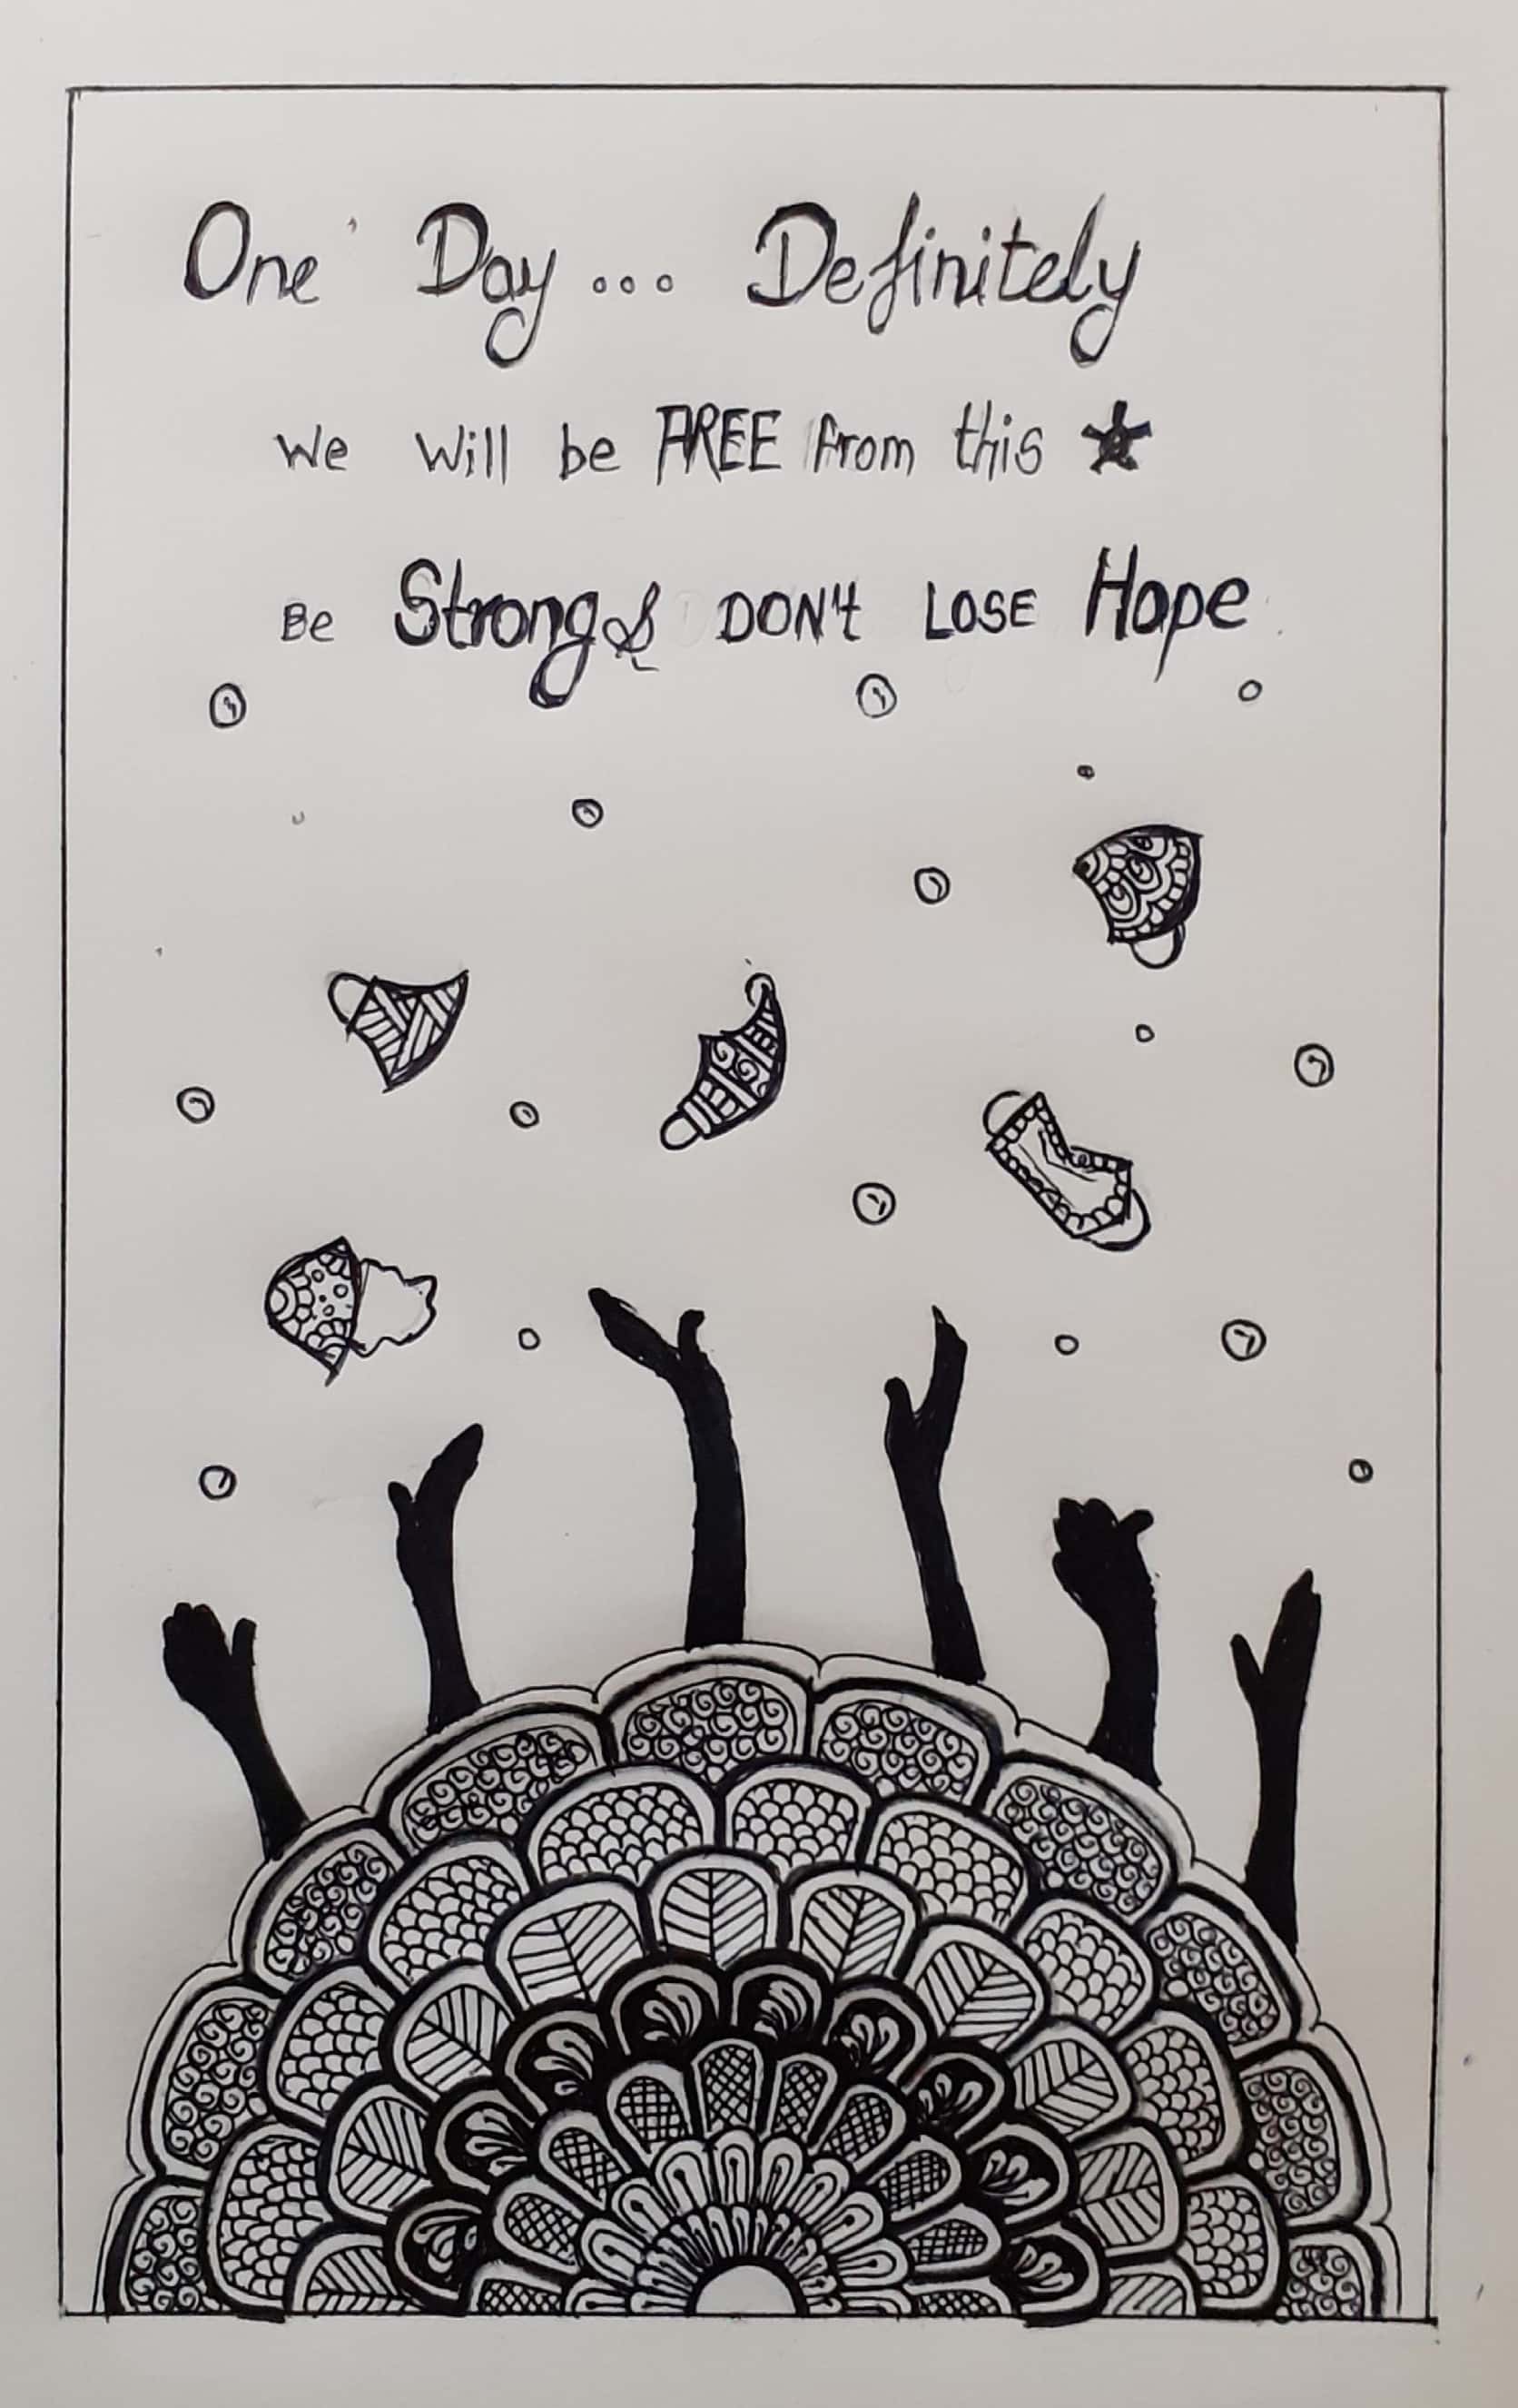 One Day... Definitely
We Will be FREE from this ★
Be Strong & DON't LOSE Hope